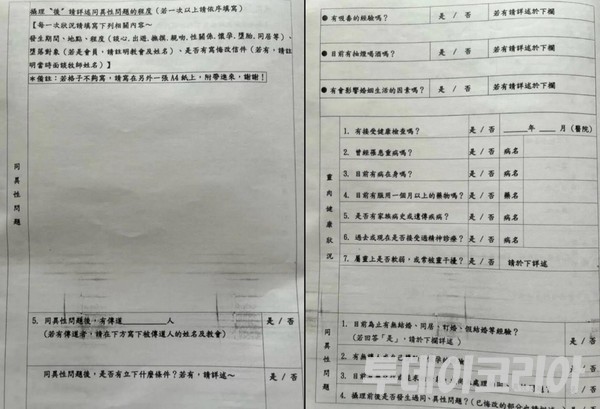 攝理〝後〞請詳述同異性問題的程度（若一次以上請依序填寫）
【每一次狀況請填寫下列相關內容～
發生期間、地點、程度（談心、出遊、撫摸、親吻、性關係、懷孕、墮胎、同居等）、
墮落對象（若是會員，請註明教會及姓名）、是否有寫悔改信件（若有，請註
明當時面談牧師姓名）】
*備註：若格子不夠寫，請寫在另外一張A4紙上，附帶進來，謝謝！
同異性問題
5. 同異性問題後，有傳道________人
（若有傳道者，請在下方寫下被傳道人的姓名及教會）
是 / 否
同異性問題後，是否有立下什麼條件？若有，請詳述～
是 / 否
●有吸毒的經驗嗎？ 是 / 否 若有請詳述於下欄
●目前有抽煙喝酒嗎？ 是 / 否 若有請詳述於下欄
●有會影響婚姻生活的因素嗎？ 是 / 否 若有請詳述於下欄
靈肉健康狀況
1. 有接受健康檢查嗎？ 是 / 否 ____年 ___月（醫院）
2. 曾經罹患重病嗎？ 是 / 否 病名
3. 目前有病在身嗎？ 是 / 否 病名
4. 目前有服用一個月以上的藥物嗎？ 是 / 否 藥名
5. 是否有家族病史或遺傳疾病？ 是 / 否 病名
6. 過去或現在是否接受過精神診療？ 是 / 否 病名
7. 屬靈上是否軟弱，或常被靈干擾？ 是 / 否 請於下詳述
同異性問題
1. 目前為止有無結婚、同居、訂婚、假結婚等經驗？
（若回答「是」，請於下欄詳述）
是 / 否
2. 有無
是 / 否
3. 目前
4. 攝理前後是否發生過同、異性問題？（已悔改的部分也請
투데이코리아